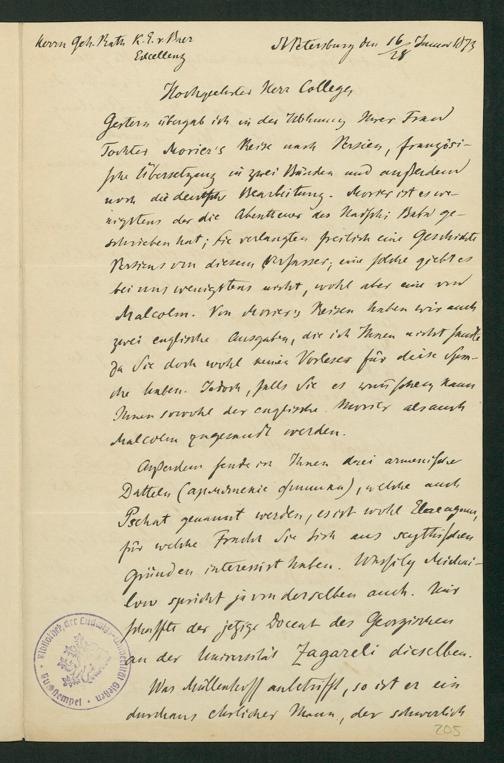 Herrn Geh. Rath K. E. v. Baer
Excellenz
St Petersburg den 16/28 Januar 1873
Hochgeehrter Herr College,
Gestern übergab ich in der Wohnung Ihrer Frau
Tochter Morier's Reise nach Persien, französi-
sche Übersetzung in zwei Bänden und außerdem
noch die deutsche Bearbeitung. Morier ist es we-
nigstens der die Abenteuer des Hadschi Baba ge-
schrieben hat; Sie verlangten freilich eine Geschichte
Persiens von diesem Verfasser; eine solche giebt es
bei uns wenigstens nicht, wohl aber eine von
Malcolm. Von Morier's Reisen haben wir auch
zwei englische Ausgaben, die ich Ihnen nicht sandte
da Sie doch wohl keinen Vorleser für diese Spra-
che haben. Jedoch, falls Sie es wünschen, kann
Ihnen sowohl der englische Morier als auch
Malcolm zugesandt werden.
Außerdem sende ich Ihnen drei armenische
Datteln (армянские финики), welche auch
Pschat genannt werden, es ist wohl Elaeagnus,
für welche Frucht Sie sich aus scythischen
Gründen interessirt haben. Wassily Michai-
low spricht ja von derselben auch. Mir
schaffte der jetzige Docent des Georgischen
an der Universität Zagareli dieselben.
Was Müllenhoff anbetrifft, so ist er ein
durchaus ehrlicher Mann, der schwerlich
Bibliothek der Ludwigs-Universität Gießen
205